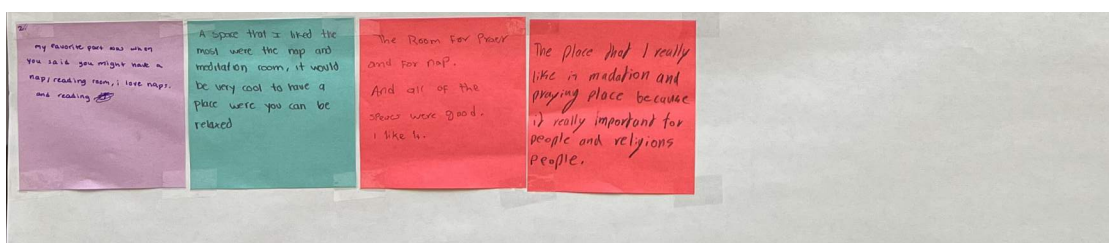 my favorite part was when
you said you might have a
nap/reading room, i love naps.
and reading
A space that I liked the
most were the nap and
meditation room, it would
be very cool to have a
place were you can be
relaxed
The Room For Preer
and For nap.
And all of the
were good.
I like it.
The place that I really
like is madation and
praying place because
it really important for
people and religions
people.